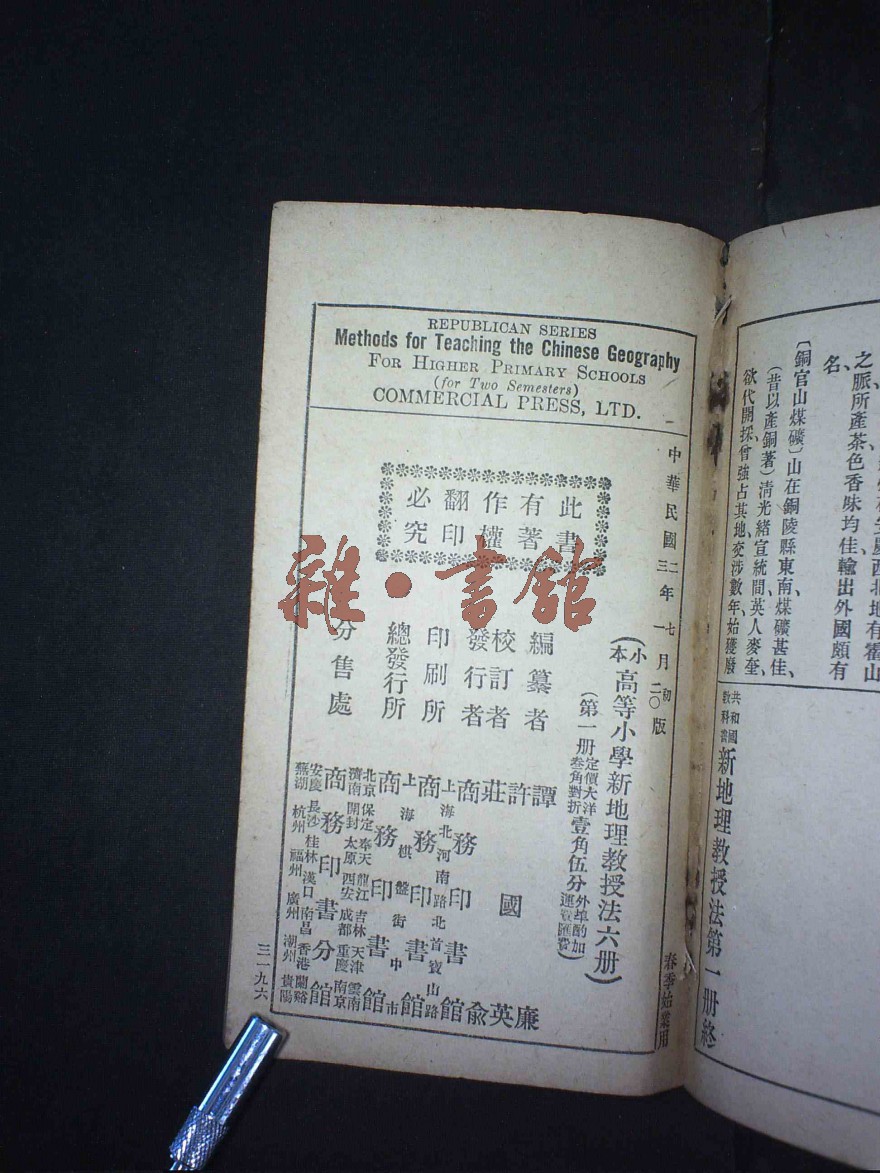 REPUBLICAN SERIES
Methods for Teaching the Chinese Geography
FOR HIGHER PRIMARY SCHOOLS
(for Two Semesters)
COMMERCIAL PRESS, LTD.
此書有著作權翻印必究
中華民國二年七月初版
中華民國三年一月二〇版
春季始業用
(小本)高等小學新地理教授法六册)
(第一册定價大洋叁角對折壹角伍分外埠酌加運費匯費)
編纂者 譚廉
校訂者 許國英 莊俞
發行者 商務印書館
印刷所 上海北河南路北首寶山路 商務印書館
總發行所 上海棋盤街中市 商務印書館
分售處 商務印書分館
北京 保定 奉天 龍江 吉林 天津 雲南
濟南 開封 太原 西安 成都 重慶 南京
安慶 長沙 桂林 漢口 南昌 香港 蘭谿
蕪湖 杭州 福州 廣州 潮州 貴陽
三一九六
之脈、所產茶色香味均佳、輸出外國頗有
名、
〔銅官山煤礦〕山在銅陵縣東南、煤礦甚佳、
(昔以產銅著)清光緒宣統間英人麥奎、
欲代開採、曾強占其地、交涉數年、始獲廢
共和國教科書 新地理教授法第一册終
雜·書館